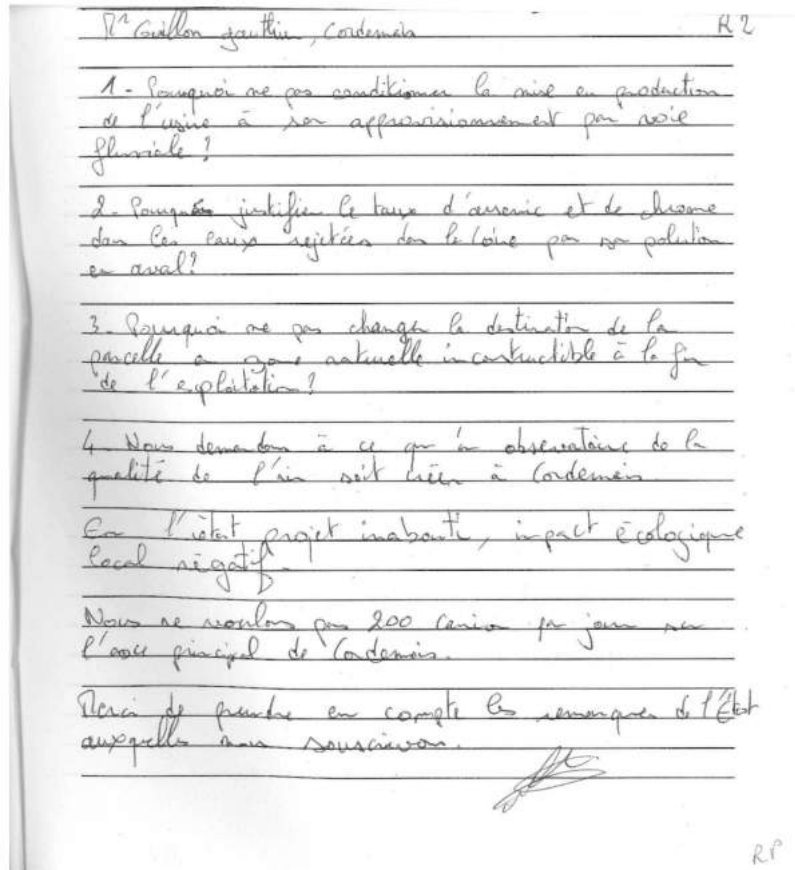 Mr Guillon gauthier, Cordemais R2
1 - Pourquoi ne pas conditionner la mise en production
de l'usine à son approvisionnement par voie
fluviale ?
2 - Pourquoi justifier le taux d'arsenic et de chrome
dans les eaux rejetées dans la Loire par sa polution
en aval ?
3 - Pourquoi ne pas changer la destination de la
parcelle en zone naturelle inconstructible à la fin
de l'exploitation ?
4 - Nous demandons à ce qu'un observatoire de la
qualité de l'air soit créer à Cordemais
En l'état projet inabouti, impact écologique
local négatif.
Nous ne voulons pas 200 camion par jour sur
l'axe principal de Cordemais.
Merci de prendre en compte les remarques de l'État
auxquelles nous souscrivons.
RP